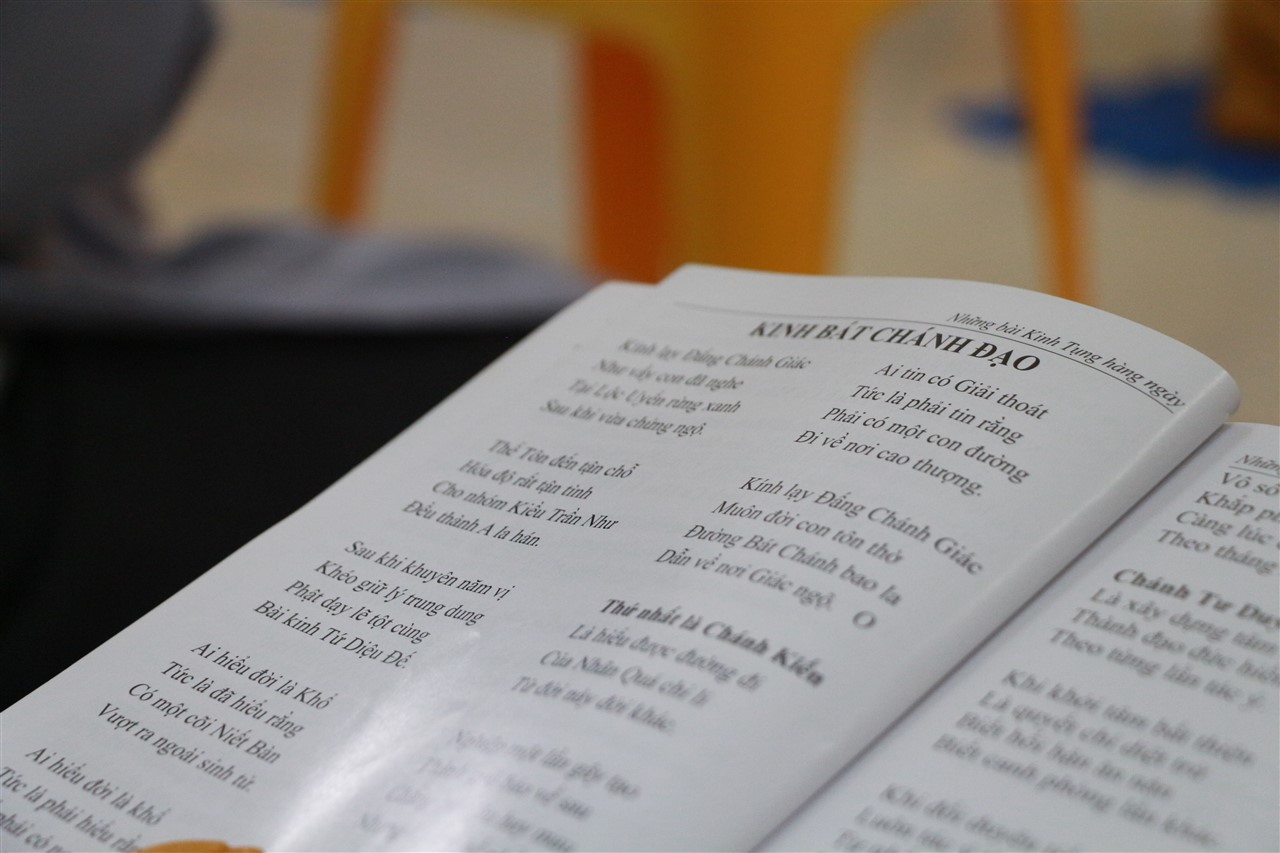 Những bài Kinh Tụng hàng ngày
KINH BÁT CHÁNH ĐẠO
Kính lạy Đấng Chánh Giác
Như vầy con đã nghe
Tại Lộc Uyển rừng xanh
Sau khi vừa chứng ngộ.
Thế Tôn đến tận chỗ
Hóa độ rất tận tình
Cho nhóm Kiều Trần Như
Đều thành A la hán.
Sau khi khuyên năm vị
Khéo giữ lý trung dung
Phật dạy lẽ tột cùng
Bài kinh Tứ Diệu Đế.
Ai hiểu đời là Khổ
Tức là đã hiểu rằng
Có một cõi Niết Bàn
Vượt ra ngoài sinh tử.
Ai hiểu đời là khổ
Tức là phải hiểu
phải có
Ai tin có Giải thoát
Tức là phải tin rằng
Phải có một con đường
Đi về nơi cao thượng.
Kính lạy Đấng Chánh Giác
Muôn đời con tôn thờ
Đường Bát Chánh bao la
Dẫn về nơi Giác ngộ. O
Thứ nhất là Chánh Kiến
Là hiểu được đường đi
Của Nhân Quả chi li
Từ đời này đời khác.
Vô số
Khắp
Càng lúc
Theo tháng
Chánh Tư Duy
Là xây dựng tâm
Thánh đạo đức hiền
Theo từng lần tác ý.
Khi khởi tâm bất thiện
Là quyết chí diệt trừ
Biết hối hận ăn năn
Biết canh phòng lần khác.